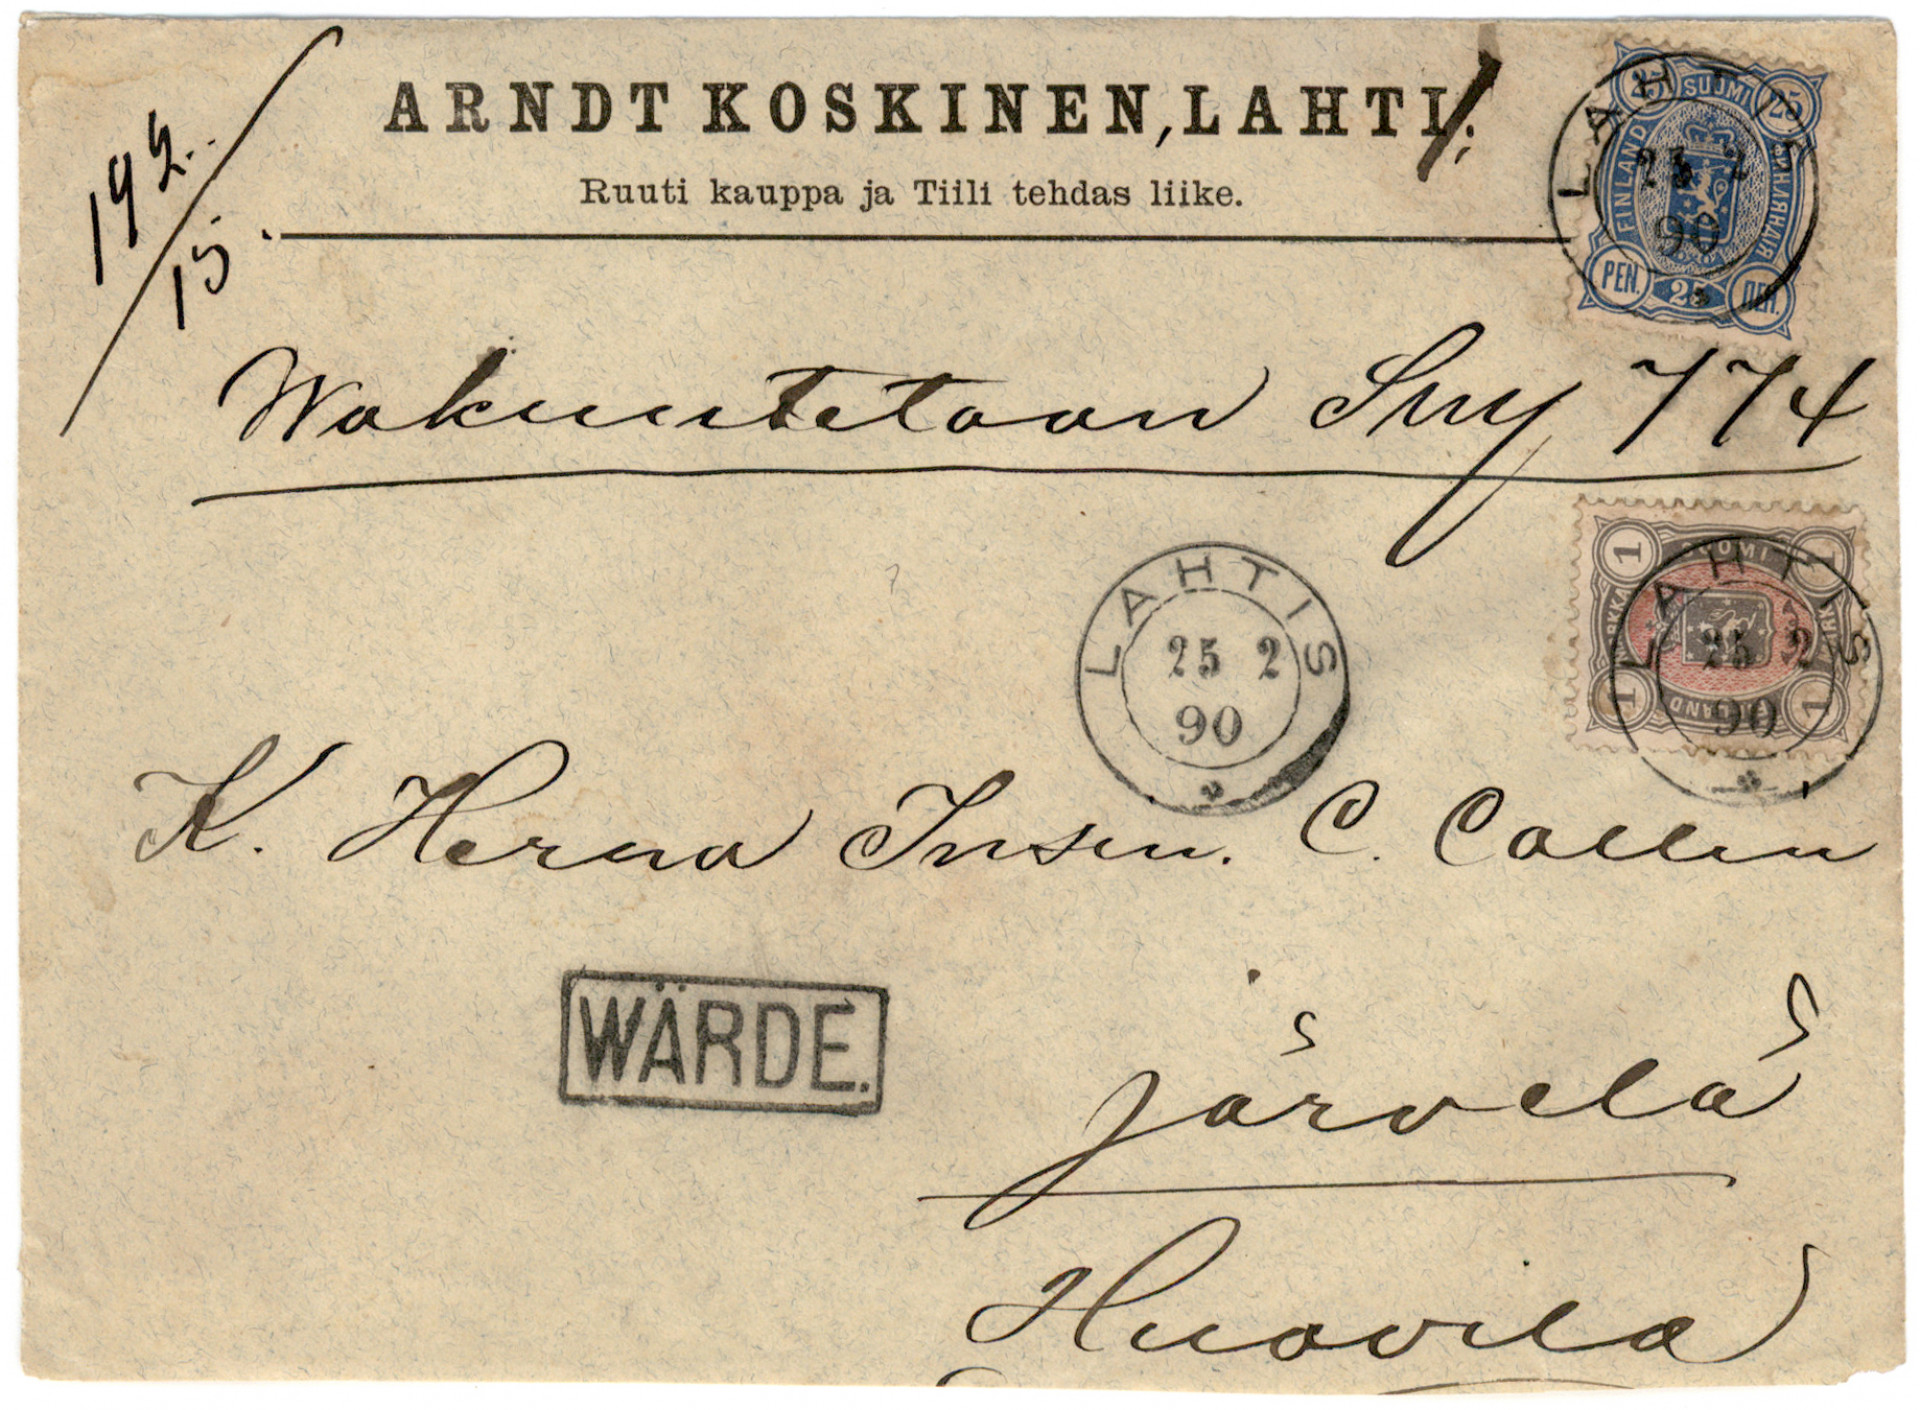 ARNDT KOSKINEN, LAHTI.
Ruuti kauppa ja Tiili tehdas liike.
15.
25 SUOMI 25
FINLAND
PEN. 25 ПЕН.
LAHTIS
25 2
90
Wakuutetaan Smy 774
1 SUOMI 1
1 FINLAND 1
LAHTIS
25 2
90
LAHTIS
25 2
90
K. Herra Insin. C. Collin
WÄRDE.
Järvelä
Huovila